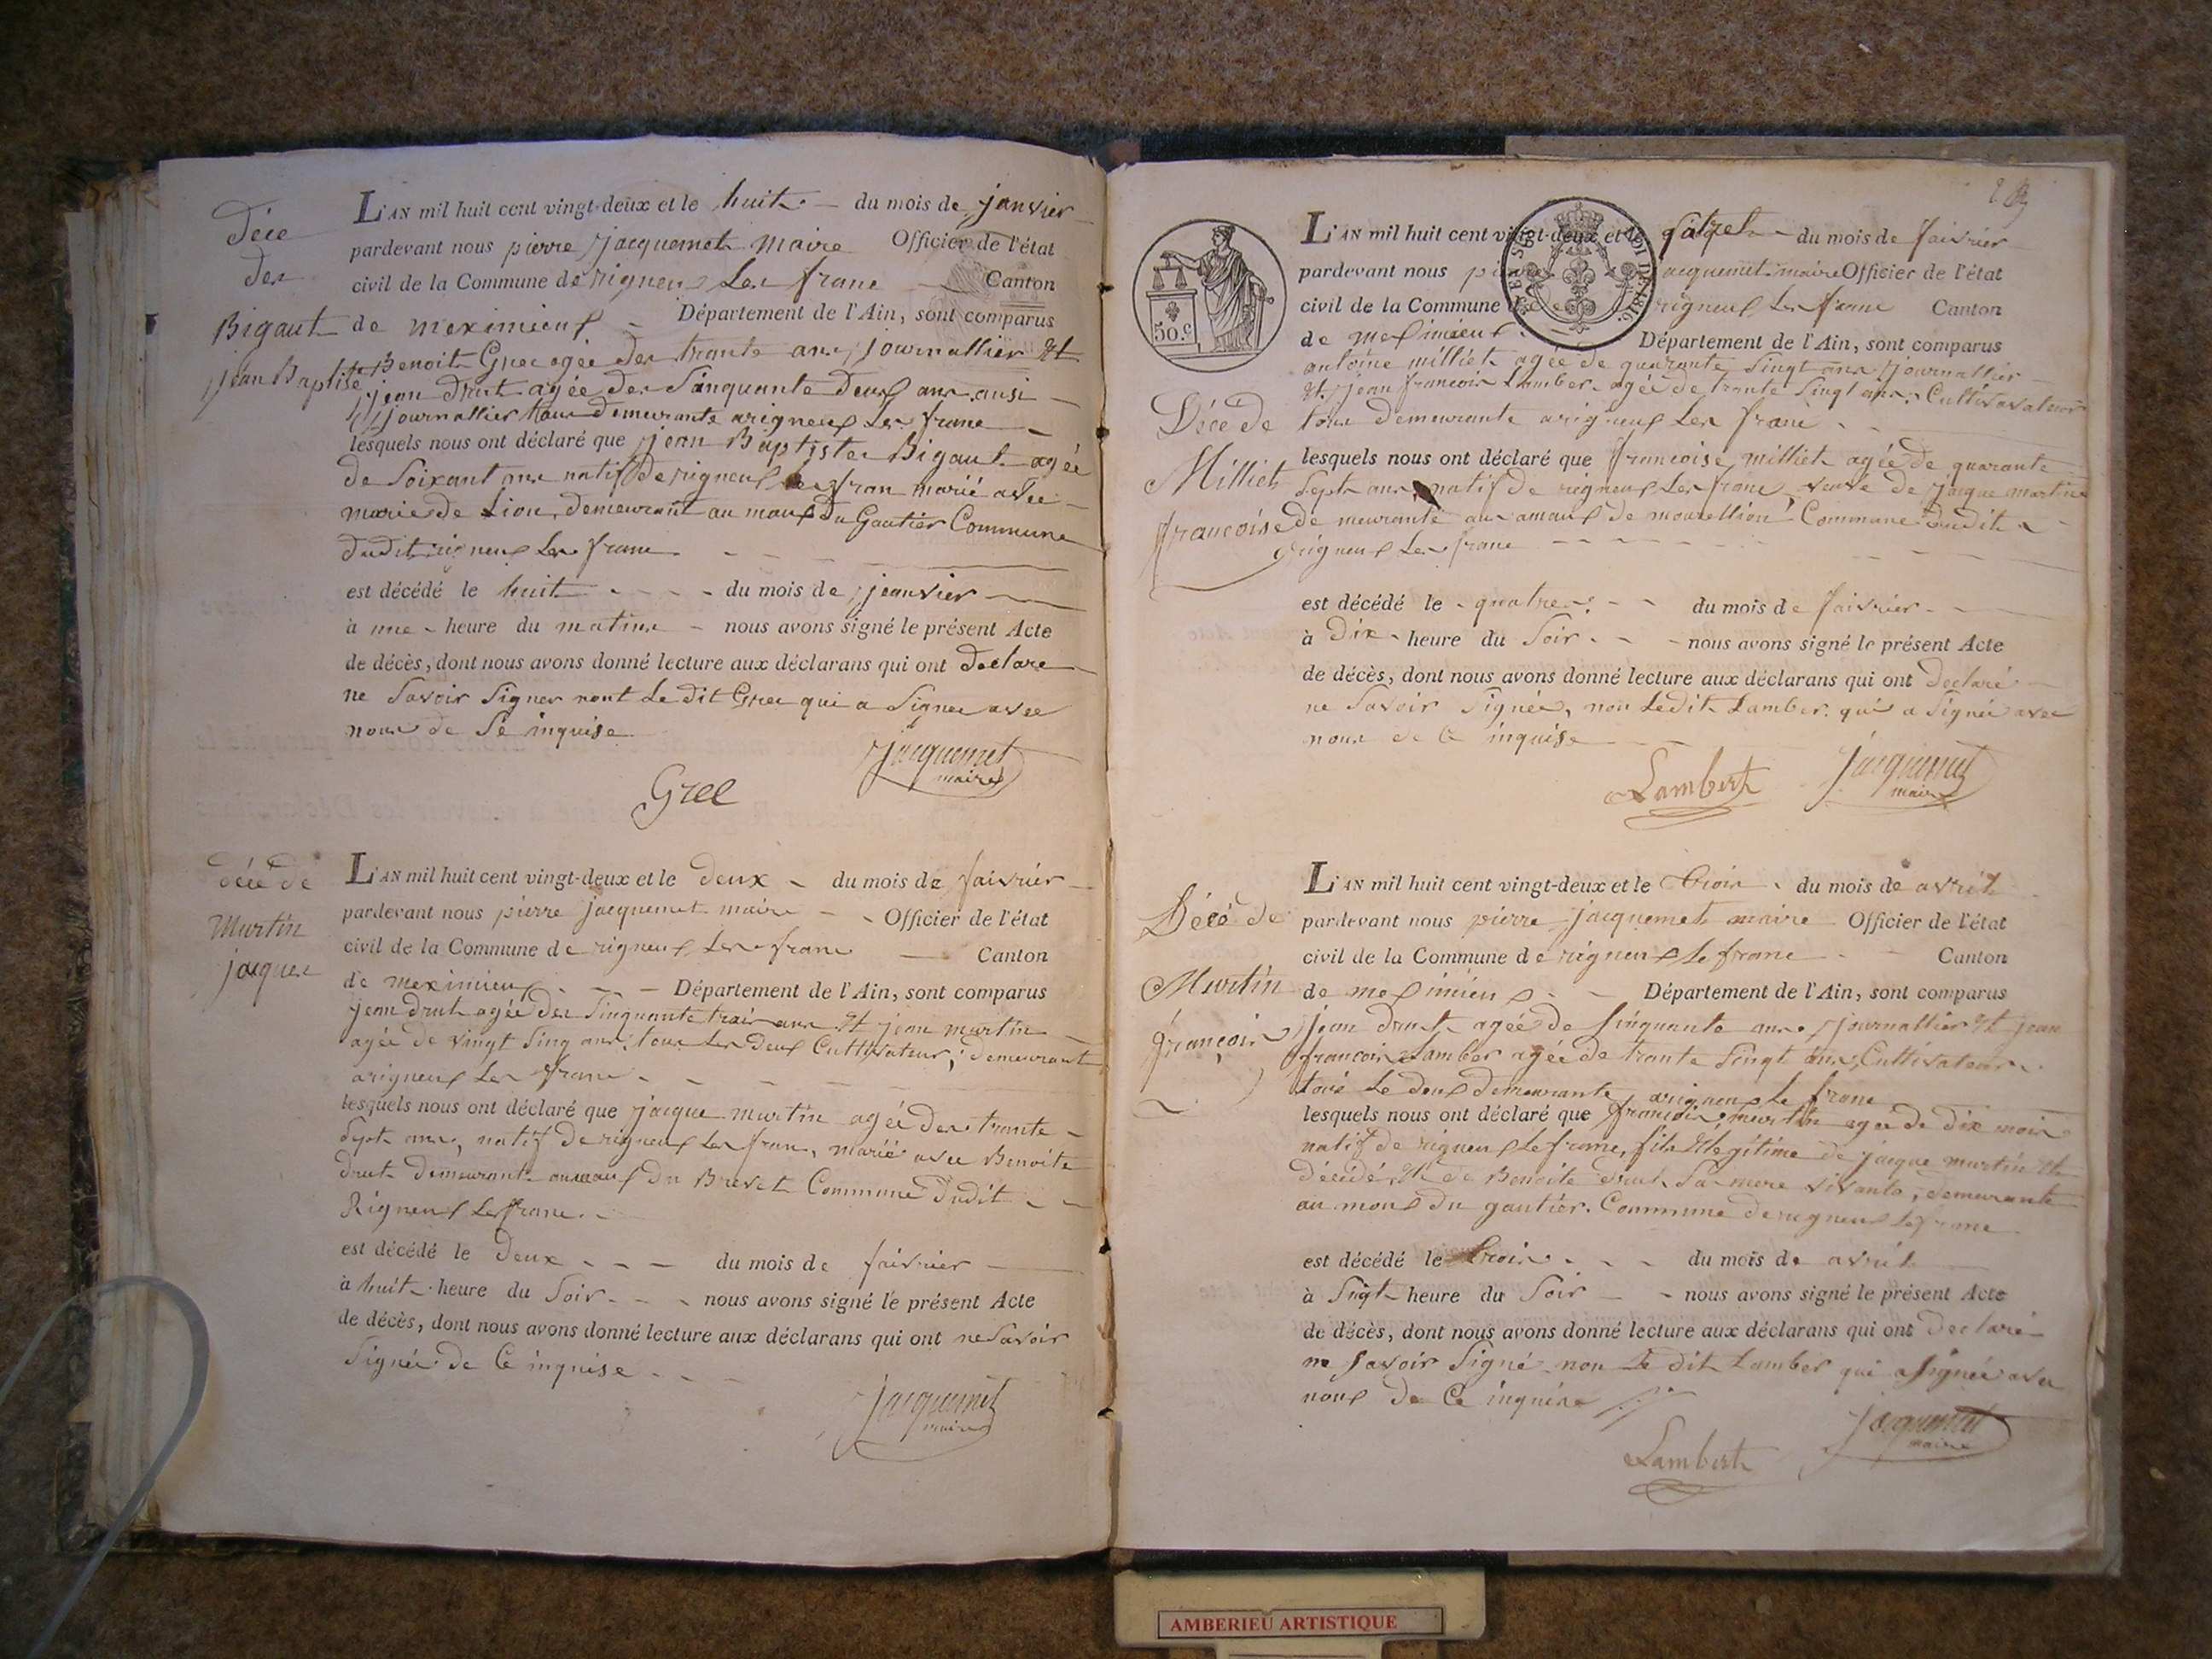 Décé
der
Bigaut
jean Baptiste
L'AN mil huit cent vingt-deux et le huit du mois de janvier
pardevant nous pierre jacquemet maire Officier de l'état
civil de la Commune de rigneux Ler franc Canton
de meximieux Département de l'Ain, sont comparus
Benoit Grec agée der trante anr journallier et
jean Drut agée der Sinquante Deux anr ausi
journallier tour Demeurante arigneux Ler franc
lesquels nous ont déclaré que jean Baptister Bigaut agée
de Soixant anr natif de rigneux fran marié avec
marie de Lion, Demeurant au maux Du Gautier Commune
Dudit rigneux Ler franc
est décédé le huit du mois de jeanvier
à une heure du matine nous avons signé le présent Acte
de décès, dont nous avons donné lecture aux déclarans qui ont Declare
ne Savoir Signer nont Le Dit Grec qui a Signee avec
nour de Se inquise
jacquemet
maire
Grec
décé de
Murtin
jacquer
L'AN mil huit cent vingt-deux et le Deux du mois de faivrier
pardevant nous pierre jacquemet maire Officier de l'état
civil de la Commune de rigneux Ler franc Canton
de meximieux Département de l'Ain, sont comparus
jean Drut agée der Sinquante trair anr et jean murtin
agée de vingt Sing anr, tour Ler Deux Cultivateur, Demeurant
arigneux Ler franc
lesquels nous ont déclaré que jacque murtin agée der trante
Sept anr, natif De rigneux Ler franc, marié avec Benoite
Drut Demeurant aumaux Du Brevet Commune Dudit
Rigneux Ler franc
est décédé le Deux du mois de faivrier
à huit heure du Soir nous avons signé le présent Acte
de décès, dont nous avons donné lecture aux déclarans qui ont ne Savoir
Signée De Ce inquise
jacquemet
maire
50.c
L'AN mil huit cent vingt-deux et le du mois de faivrier
pardevant nous jacquemet maire Officier de l'état
civil de la Commune rigneux Ler franc Canton
de meximieux Département de l'Ain, sont comparus
antoine milliet agée de quarante Singt anr journallier
et jean francoir Lamber agée de trante Singt anr Cultivavateur
tour Demeurante arigneux Ler franc
Décé De
Milliet
francoise
lesquels nous ont déclaré que francoise milliet agée De quarante
Sept anr natif de rigneux Ler franc veuve de jacque martin
De meurante au amaux De mouellion Commune Dudit
rigneux Ler franc
est décédé le quatre du mois de faivrier
à Dix heure du Soir nous avons signé le présent Acte
de décès, dont nous avons donné lecture aux déclarans qui ont Declaré
ne Savoir Signée, non Ledit Lamber qui a Signée avec
nour de Ce inquise
Lambert
jacquemet
maire
Décé De
Murtin
françoir
L'AN mil huit cent vingt-deux et le troir du mois de avril
pardevant nous pierre jacquemet maire Officier de l'état
civil de la Commune de rigneux Le franc Canton
de meximieux Département de l'Ain, sont comparus
jean Drut agée de Sinquante anr journallier et jean
francoir Lamber agée de trante Singt anr, Cultivateur
tour Le Deux Demeurante arigneux Le franc
lesquels nous ont déclaré que francoir murtin agée de Dix moir
natif de rigneux Le franc, fils legitime de jacque murtin
Décédé, et De Benoite Drut Sa mere vivante, Demeurante
au maux Du gautier. Commune De rigneux Le franc
est décédé le troir du mois de avril
à Sigt heure du Soir nous avons signé le présent Acte
de décès, dont nous avons donné lecture aux déclarans qui ont Declaré
ne Savoir Signé non Le Dit Lamber qui a Signée avec
nous De Ce inquise
Lambert
jacquemet
maire
AMBERIEU ARTISTIQUE